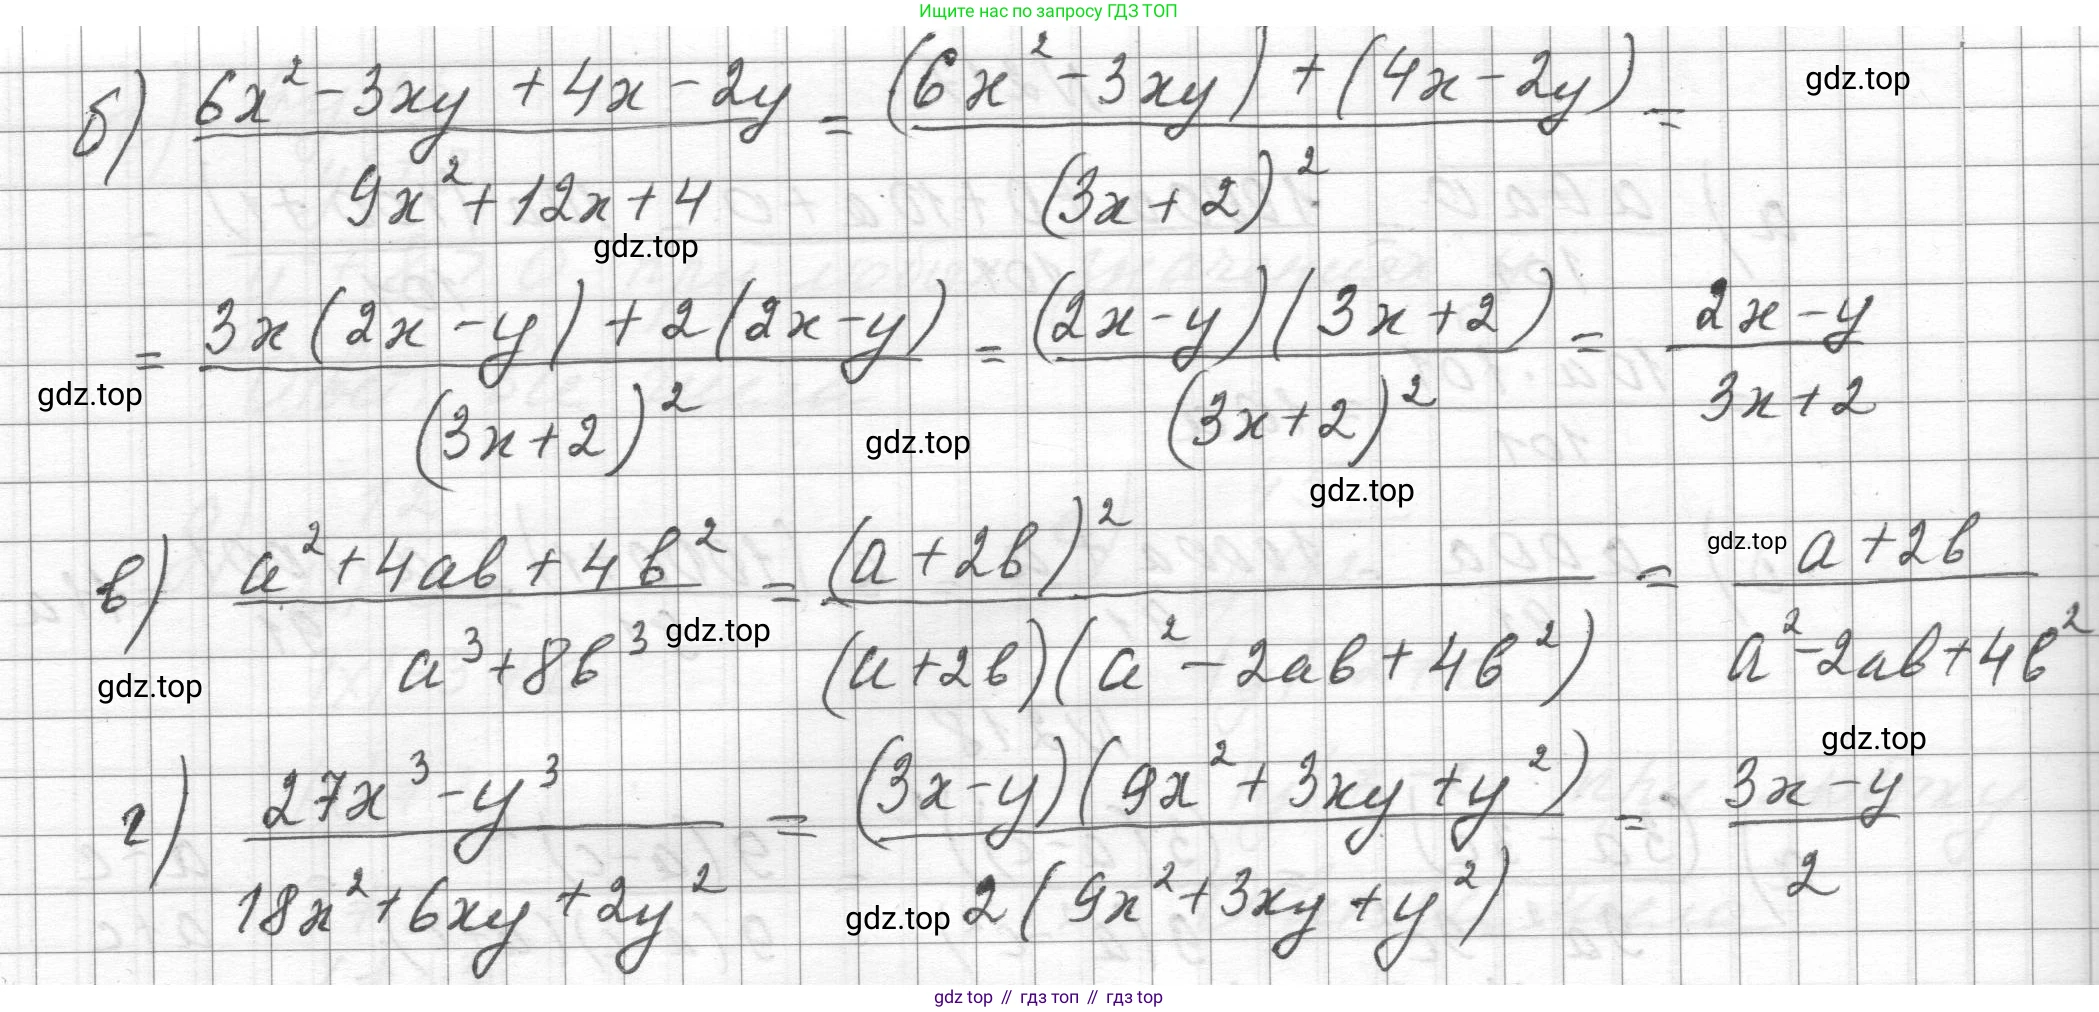 Ищите нас по запросу ГДЗ ТОП
б) (6x² - 3xy + 4x - 2y)/(9x² + 12x + 4) = ((6x² - 3xy) + (4x - 2y))/(3x + 2)² =
gdz.top
gdz.top
= (3x(2x - y) + 2(2x - y))/(3x + 2)² = ((2x - y)(3x + 2))/(3x + 2)² = (2x - y)/(3x + 2)
gdz.top
gdz.top
gdz.top
в) (a² + 4ab + 4b²)/(a³ + 8b³) = (a + 2b)²/((a + 2b)(a² - 2ab + 4b²)) = (a + 2b)/(a² - 2ab + 4b²)
gdz.top
gdz.top
gdz.top
г) (27x³ - y³)/(18x² + 6xy + 2y²) = ((3x - y)(9x² + 3xy + y²))/(2(9x² + 3xy + y²)) = (3x - y)/2
gdz.top
gdz.top
gdz top // гдз топ // гдз top